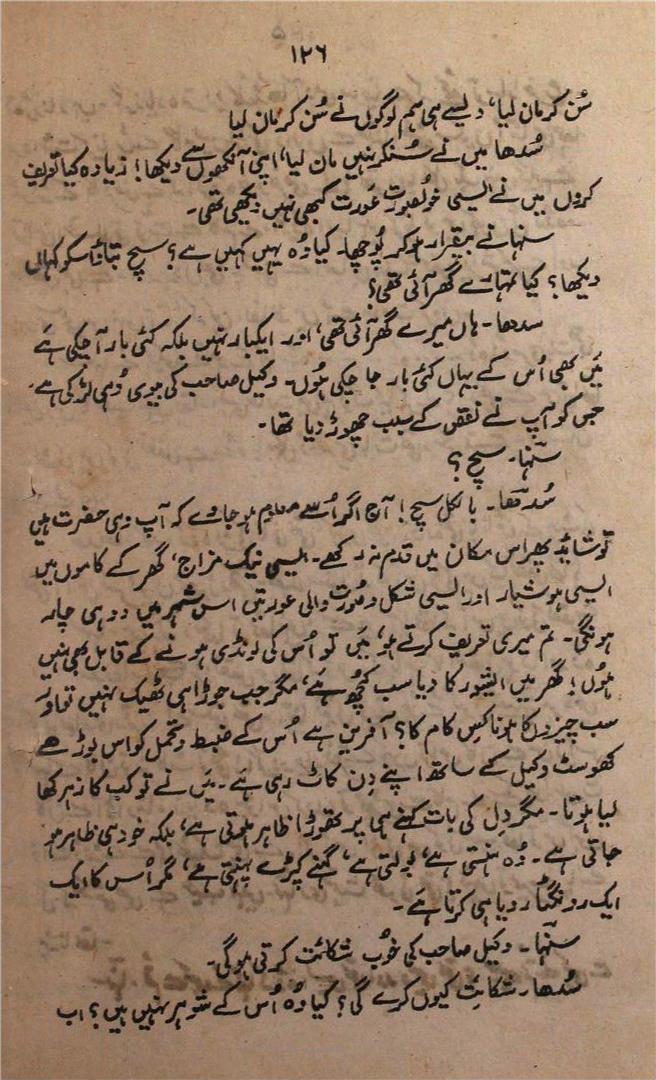 ۱۲۶
سُن کر مان لیا، ویسے ہی ہم لوگوں نے سُن کر مان لیا
سُدھا میں نے سُنکر نہیں مان لیا، اپنی آنکھوں سے دیکھا! زیادہ کیا تعریف
کروں میں نے ایسی خوبصورت عورت کبھی نہیں دیکھی تھی۔
سنہا نے بیقرار ہو کر پُوچھا۔ کیا وُہ یہیں کہیں ہے؟ سچ بتاؤ اسکو کہاں
دیکھا؟ کیا تمہارے گھر آئی تھی؟
سدھا۔ ہاں میرے گھر آئی تھی، اور ایکبار نہیں بلکہ کئی بار آ چکی ہے
میَں بھی اُس کے یہاں کئی بار جا چکی ہوُں۔ وکیل صاحب کی بیوی وُہی لڑکی ہے۔
جس کو آپ نے نقص کے سبب چھوڑ دیا تھا۔
سنہا۔ سچ؟
سُدھا۔ بالکل سچ! آج اگر اُسے معلوم ہو جاوے کہ آپ وہی حضرت ہیں
تو شاید پھر اس مکان میں قدم نہ رکھے۔ ایسی نیک مزاج، گھر کے کاموں میں
ایسی ہوشیار اور ایسی شکل و صُورت والی عورتیں اس شہر میں دو ہی چار
ہونگی۔ تم میری تعریف کرتے ہو، میَں تو اُس کی لونڈی ہونے کے قابل بھی نہیں
ہوُں! گھر میں ایشور کا دیا سب کچھُ ہے، مگر جب جوڑا ہی ٹھیک نہیں تو اور
سب چیزوں کا ہونا کِس کام کا؟ آفرین ہے اُس کے ضبط و تحمل کو اس بوڑھے
کھوسٹ وکیل کے ساتھ اپنے دِن کاٹ رہی ہے۔ میَں نے تو کب کا زہر کھا
لیا ہوتا۔ مگر دِل کی بات کہنے ہی پر تھوڑا ظاہر ہوتی ہے، بلکہ خود ہی ظاہر ہو
جاتی ہے۔ وُہ ہنستی ہے، بولتی ہے، گہنے کپڑے پہنتی ہے، مگر اُس کا ایک
ایک رونگٹا رویا ہی کرتا ہے۔
سنہا۔ وکیل صاحب کی خُوب شکائت کرتی ہوگی۔
سُدھا۔ شکائت کیوں کرے گی؟ کیا وُہ اُس کے شوہر نہیں ہیں؟ اب